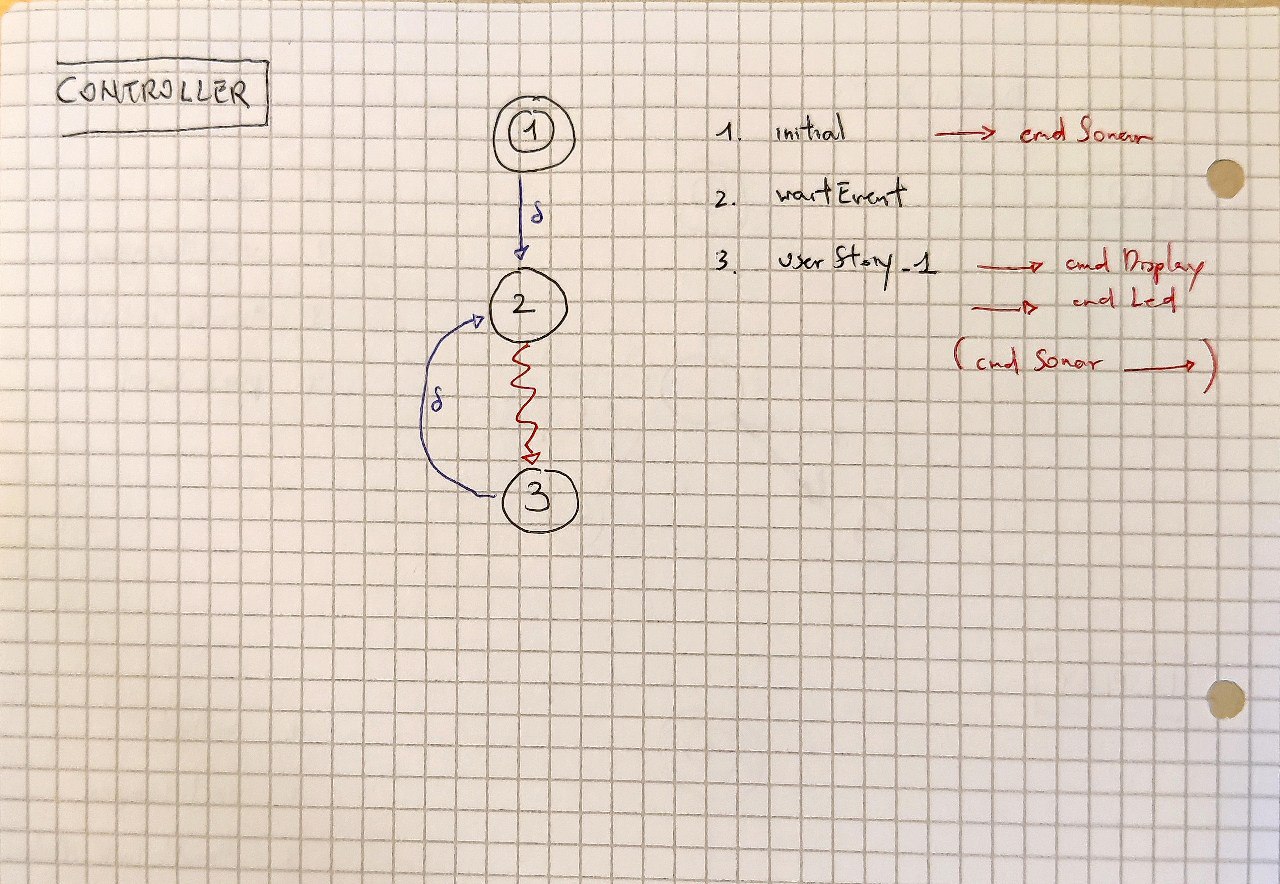 CONTROLLER
1
δ
2
δ
3
1. initial → cmd Sonar
2. waitEvent
3. userStory_1 → cmd Display
→ cmd Led
(cmd Sonar →)